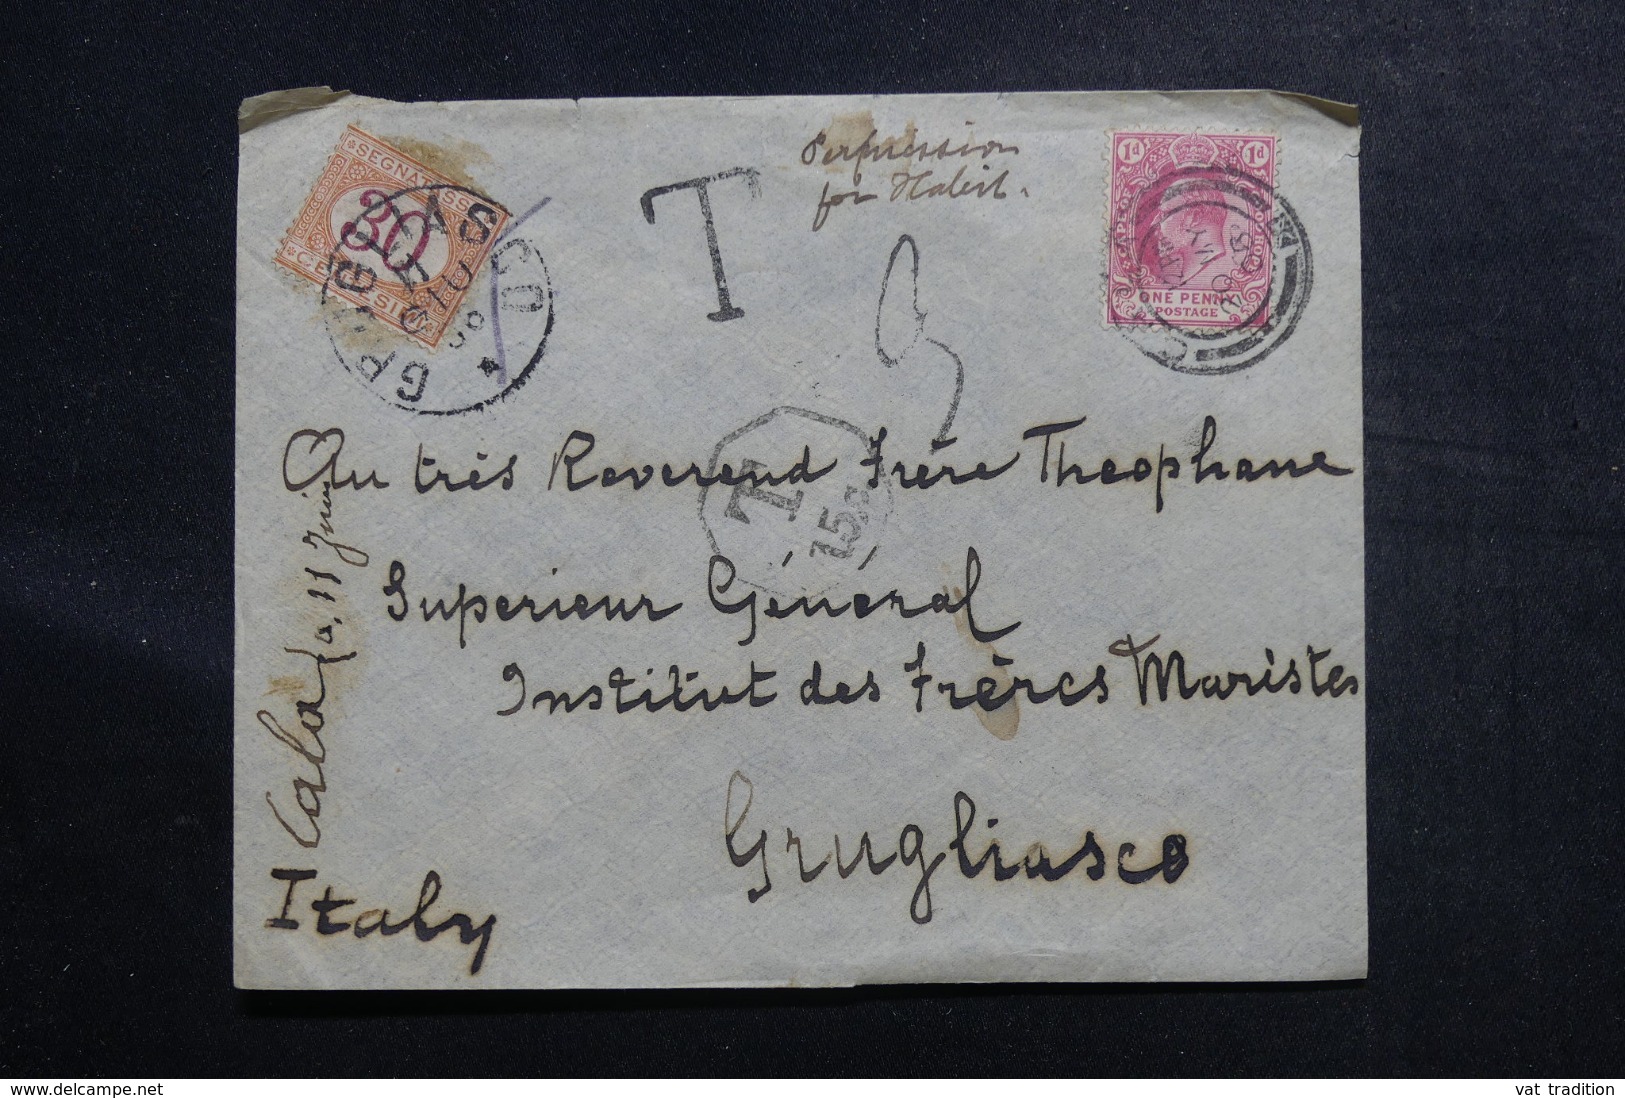 SEGNATASSE
30
CENTESIMI
GRUGLIASCO
T
for
1d 1d
CAPE OF GOOD
ONE PENNY
POSTAGE
MY
T
15.c
Au très Reverend Frère Theophane
Superieur Général
Institut des Frères Maristes
Grugliasco
Italy
11 Juin
delcampe.net
vat tradition